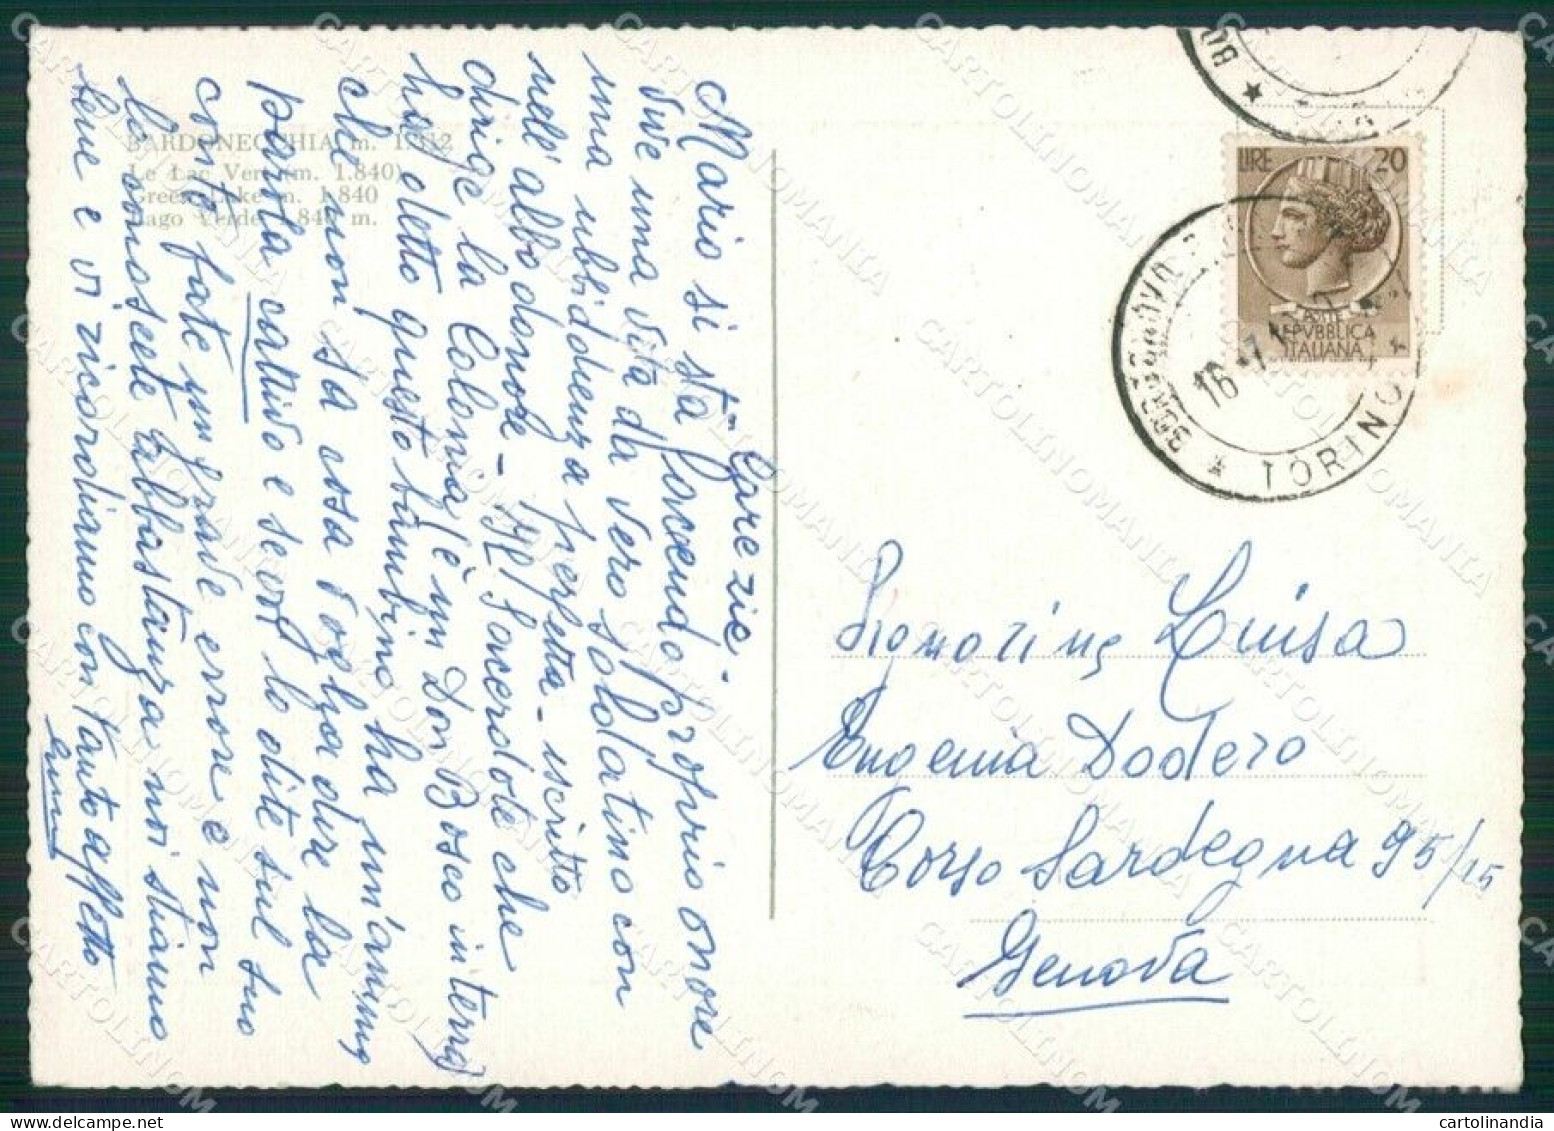 BARDONECCHIA m. 1.312
Le Lac Vert (m. 1.840)
Green Lake m. 1.840
Lago Verde 1.840 m.
Care zie -
Mario si sta facendo proprio onore
vive una vita da vero soldatino con
una ubbidienza perfetta - iscritto
nell'albo d'onore - Il Sacerdote che
dirige la Colonia (è un Don Bosco in terra)
ha detto questo bambino ha un'anima
che non sa cosa voglia dire la
parola cattivo e se voi lo dite sul suo
conto fate un grave errore e non
lo conoscete abbastanza noi stiamo
bene e vi ricordiamo con tanto affetto
LIRE 20
POSTE
REPVBBLICA
ITALIANA
16 -7
TORINO
Signorine Luisa
Eugenia Dodero
Corso Sardegna 95/15
Genova
CARTOLINOMANIA
cartolinandia